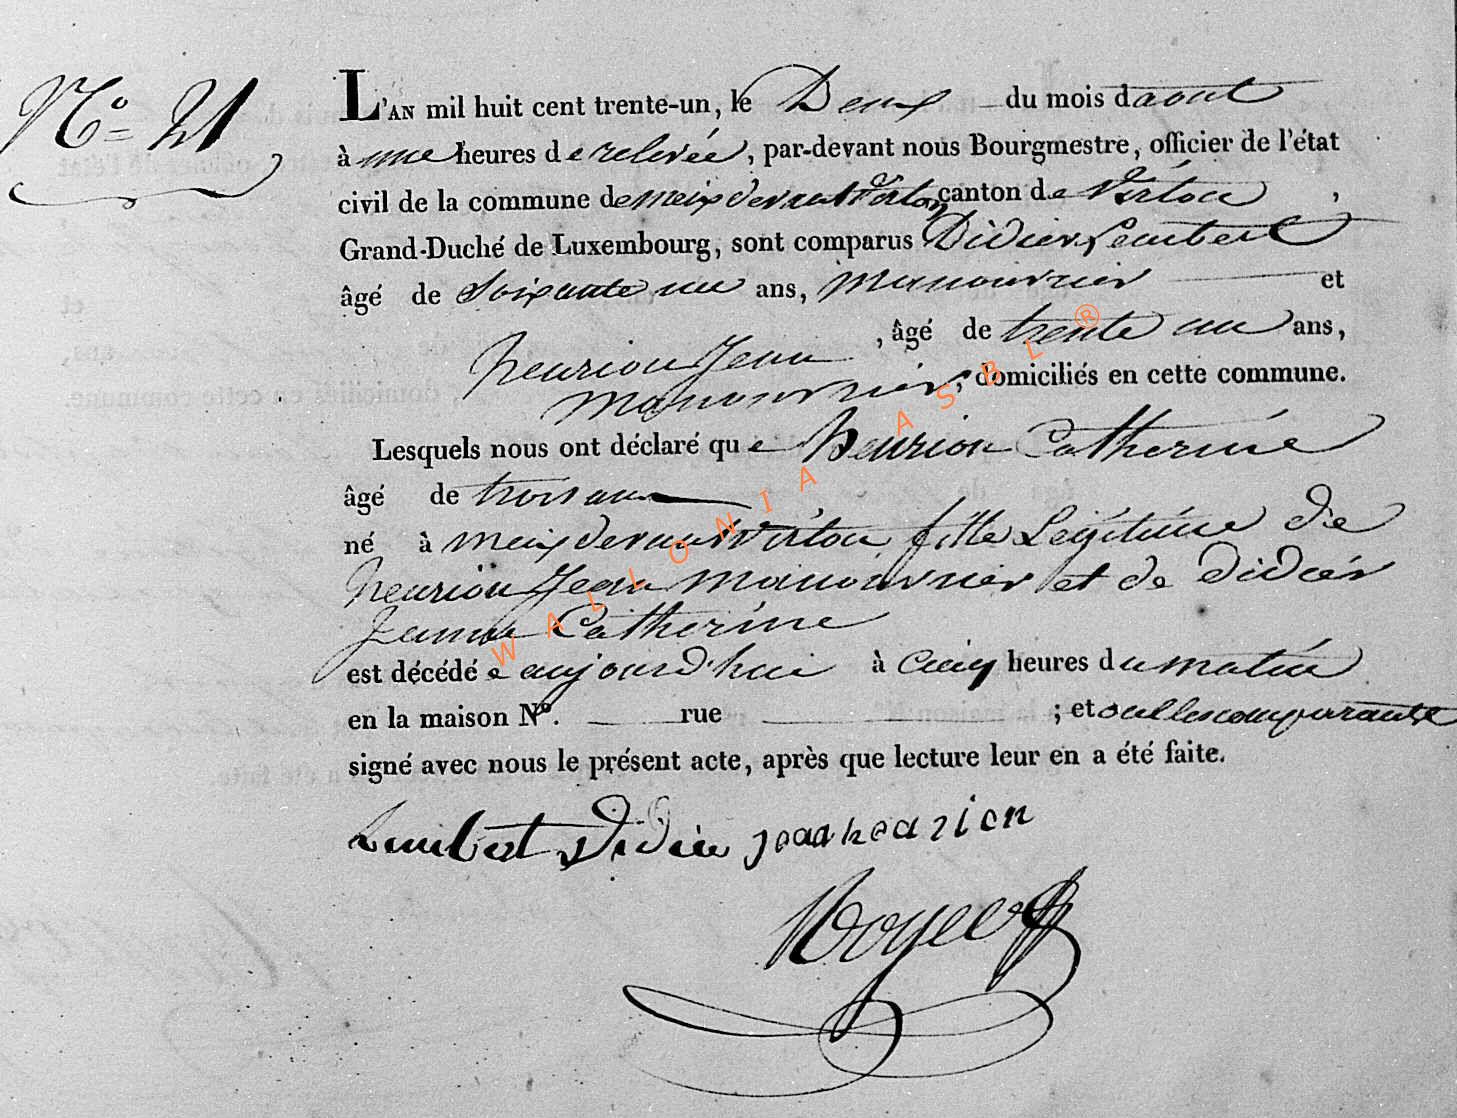 N° 21
L'AN mil huit cent trente-un, le Deux du mois d'aout
à une heures de relevée, par-devant nous Bourgmestre, officier de l'état
civil de la commune de meix devant Virton, canton de Virton,
Grand-Duché de Luxembourg, sont comparus Didier Lambert
âgé de Soixante un ans, Manouvrier et
henrion Jean, âgé de trente un ans,
manouvrier, domiciliés en cette commune.
Lesquels nous ont déclaré que henrion Catherine
âgé de trois ans
né à meix devant Virton, fille Légitime de
henrion Jean manouvrier et de didier
Jeanne Catherine
est décédée aujourd'hui à cinq heures du matin
en la maison N°. rue ; et comparants
signé avec nous le présent acte, après que lecture leur en a été faite.
Lambert Didier jean henrion
WALLONIA ASBL ®